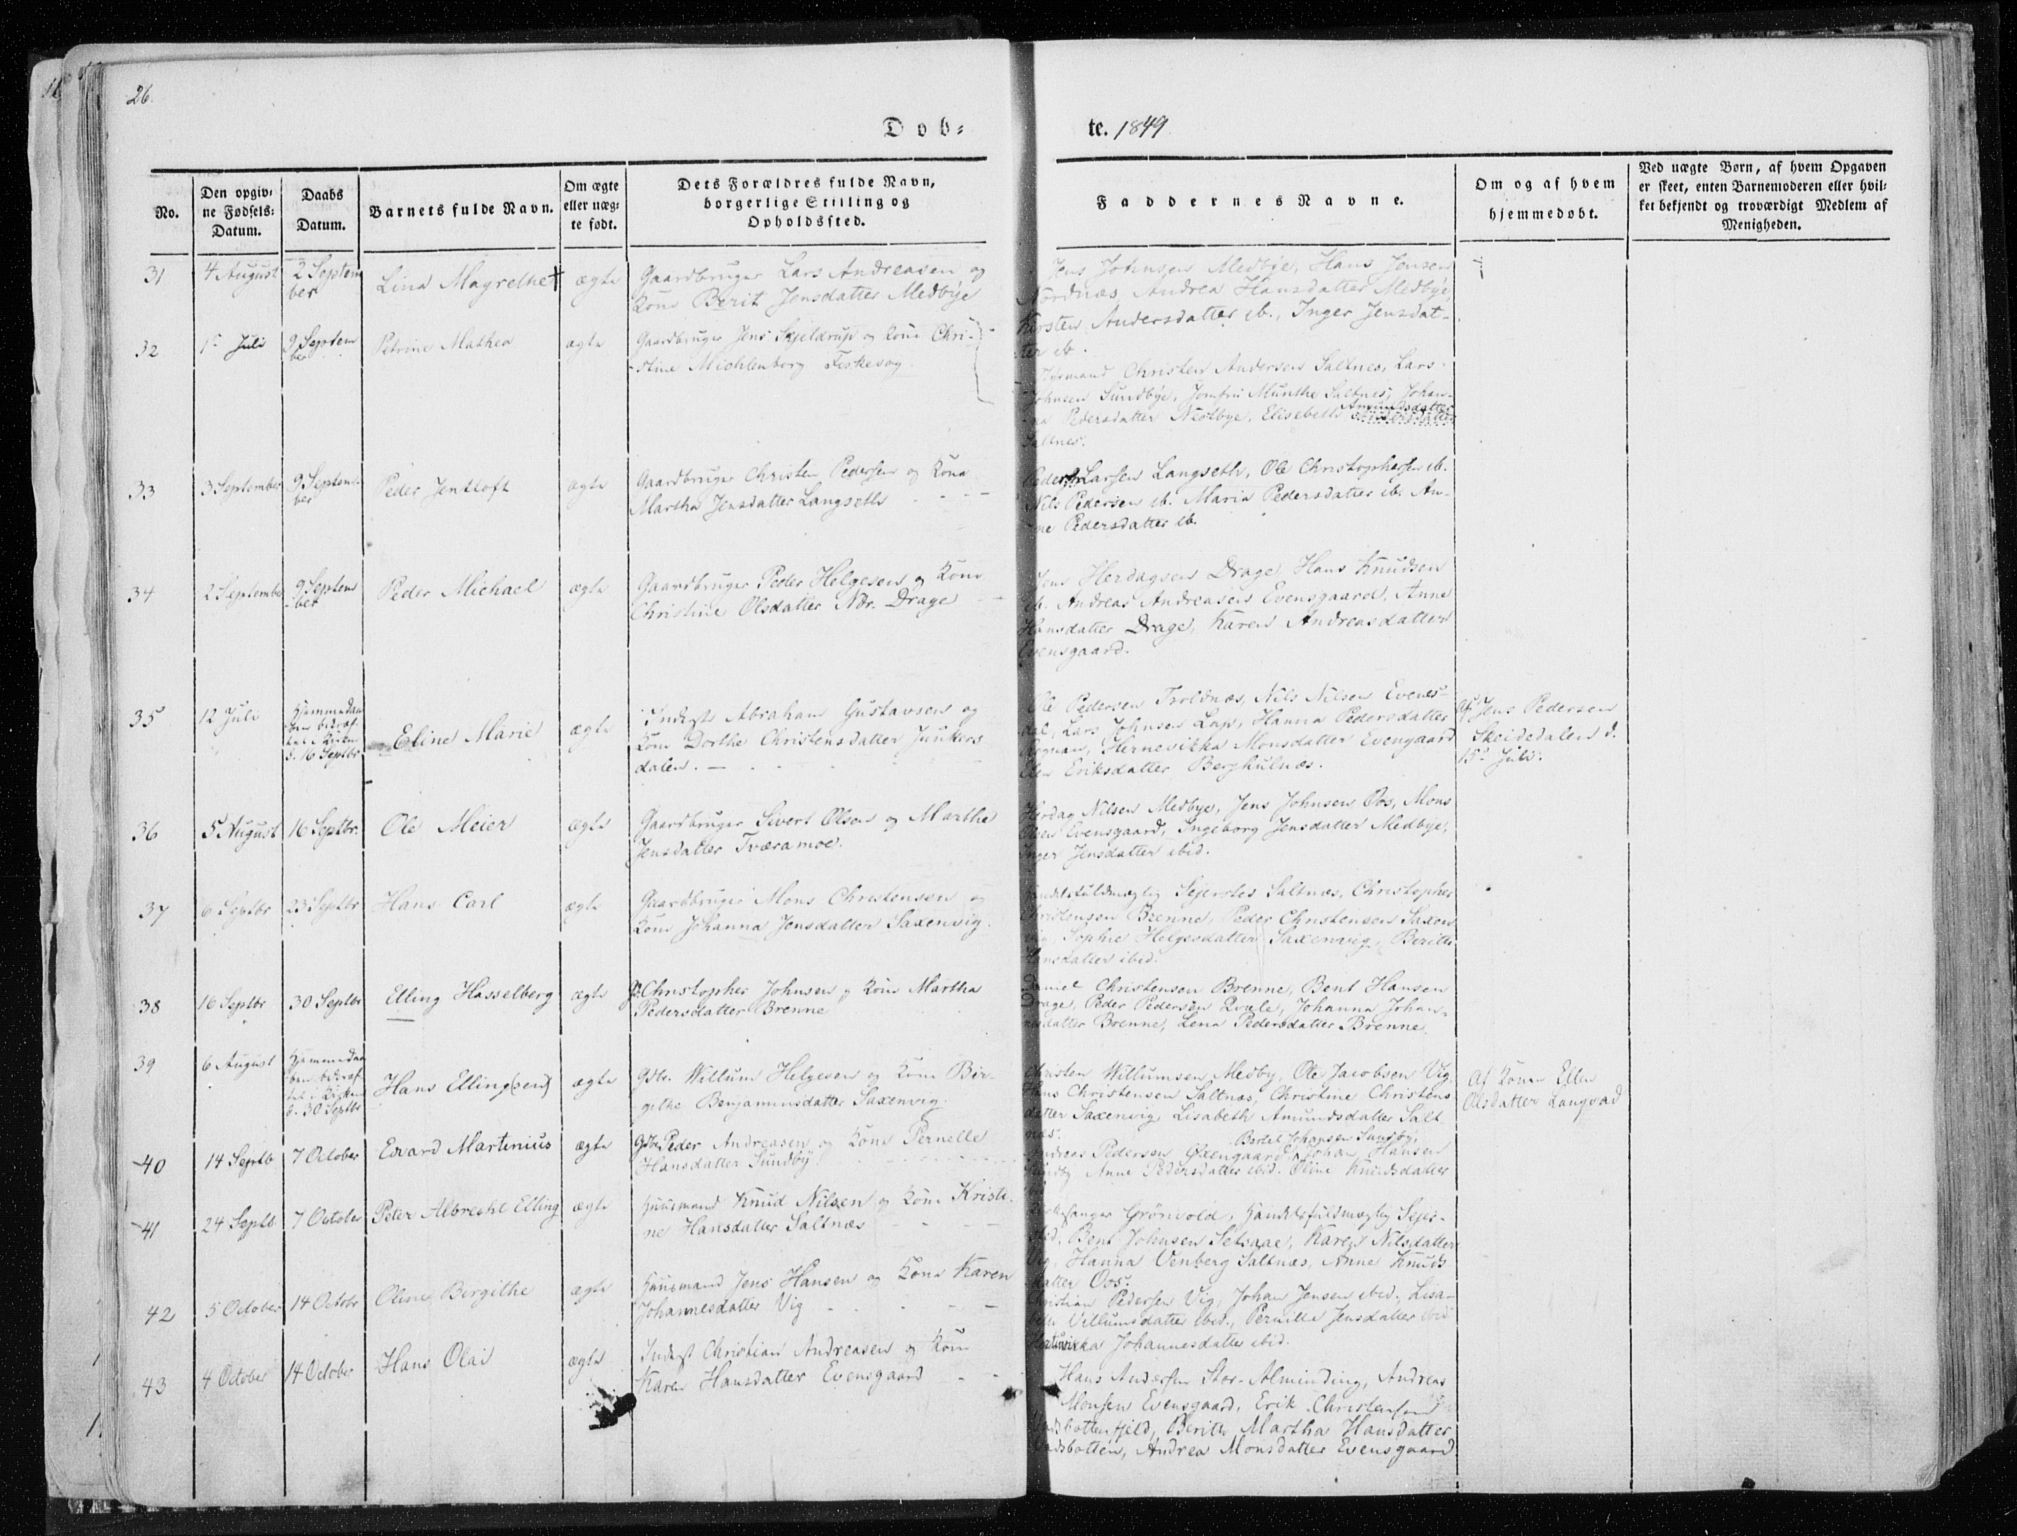 26.
Døb-
te. 1849.
No.
Den opgiv-
ne Fødsels-
Datum.
Daabs
Datum.
Barnets fulde Navn.
Om ægte
eller uæg-
te født.
Dets Forældres fulde Navn,
borgerlige Stilling og
Opholdssted.
Faddernes Navne.
Om og af hvem
hjemmedøbt.
Ved uægte Børn, af hvem Opgaven
er skeet, enten Barnemoderen eller hvil-
ket bekjendt og troværdigt Medlem af
Menigheden.
31
4 August
2 Septem
ber
Lina Magrethe †
ægte
Gaardbruger Lars Andreasen og
Kone Berit Jensdatter Medbye
Jens Johnsen Medbye, Hans Jensen
Nordnæs, Andrea Hansdatter Medbye,
Kirsten Andersdatter ib., Inger Jensdat-
ter ib.
32
1ste Juli
9 Septem
ber
Petrine Mathea
ægte
Gaardbruger Jens Skjeldrup og Kone Chri-
stine Michlenborg Fiskevog.
Christen Andersen Saltnes, Lars
Johnsen Sundbye, Jomfru Munthe Saltnes, Johan-
na Pedersdatter Medbye, Elisabeth Amundsdatter
Saltnes.
33
3 September
9 Septem-
ber
Peder Jentloft
ægte
Gaardbruger Christen Pedersen og Kone
Martha Jensdatter Langseth
Peder Larsen Langseth, Ole Christophersen ib.
Nils Pedersen ib. Maria Pedersdatter ib. An-
ne Pedersdatter ib.
34
2 September
9 Septem
ber
Peder Michael
ægte
Gaardbruger Peder Helgesen og Kone
Christine Olsdatter Ndr. Drage
Jens Herdagsen Drage, Hans Knudsen
ib. Andreas Andreasen Evensgaard, Anne
Hansdatter Drage, Karen Andreasdatter
Evensgaard.
35
12 Juli
Hjemmedaa
ben bekræf
tet i Kirken
d. 16 Septbr
Eline Marie
ægte
Inderst Abraham Gustavsen og
Kone Dorthe Christensdatter Junkers
dalen.
Ole Pedersen Troldnæs, Nils Nilsen Evenes-
dal, Lars Johnsen Lap, Hanna Pedersdatter
Rognan, Hernevikka Monsdatter Evensgaard
Eriksdatter Berghulnæs.
Af Jens Pedersen
Skeidedalen d.
15de Juli.
36
5 August
16 Septbr.
Ole Meier
ægte
Gaardbruger Sivert Olsen og Marthe
Jensdatter Tværamoe.
Herdag Nilsen Medbye, Jens Johnsen Oos, Mons
Olsen Evensgaard, Ingeborg Jensdatter Medbye,
Inger Jensdatter ibid.
37
6 Septbr
23 Septbr
Hans Carl
ægte
Gaardbruger Mons Christensen og
Kone Johanna Jensdatter Saxenvig.
Handelsfuldmægtig Sejersted Saltnæs, Christopher
Christensen Brenne, Peder Christensen Saxen
vig, Sophie Helgesdatter Saxenvig, Berithe
Hansdatter ibid.
38
16 Septbr
30 Septbr
Elling Hasselberg
ægte
Christopher Johnsen og Kone Martha
Pedersdatter Brenne
Daniel Christensen Brenne, Bent Hansen
Drage, Peder Pedersen Qvale, Johanna Johan-
nesdatter Brenne, Lena Pedersdatter Brenne.
39
6 August
Hjemmedaa
ben bekræf
tet i Kirken
d. 30 Septbr
Hans Elling(sen)
ægte
Gdbr. Willum Helgesen og Kone Bir-
githe Benjaminsdatter Saxenvig.
Christen Willumsen Medby, Ole Jacobsen Vig,
Hans Christensen Saltnæs, Christine Christens
datter Saxenvig, Lisabeth Amundsdatter Salt
næs.
Af Konen Ellen
Olsdatter Langvad
40
14 Septb
7 October
Edvard Martinius
ægte
Gdbr Peder Andreasen og Kone Pernelle
Hansdatter Sundby
Bertel Johansen Sundby,
Andreas Pedersen Øxengaard, Johan Hansen
Sundby Anne Pedersdatter ibid. Oline Knudsdatter
41
24 Septb
7 October
Peter Albrecht Elling
ægte
Huusmand Knud Nilsen og Kone Kristi-
ne Hansdatter Saltnæs
Kirkesanger Grönvold, Handelsfuldmægtig Sejer-
sted, Bent Johnsen Setsaae, Karen Nilsdatter
Vig, Hanna Venberg Saltnæs, Anne Knuds
datter Oos.
42
5 October
14 Octobr
Oline Birgithe
ægte
Huusmand Jens Hansen og Kone Karen
Johannesdatter Vig
Christian Pedersen Vig, Johan Jensen ibid. Lisa-
beth Villumsdatter ibid., Pernille Jensdatter ibid
Johannesdatter ibid.
43
4 October
14 October
Hans Olai
ægte
Inderst Christian Andreasen og Kone
Karen Hansdatter Evensgaard
Hans Andersen Stor-Alminding, Andreas
Monsen Evensgaard, Erik Christensen
Vadsbottenfjeld, Berith Martha Hansdatter
Vadsbotten, Andrea Monsdatter Evensgaard